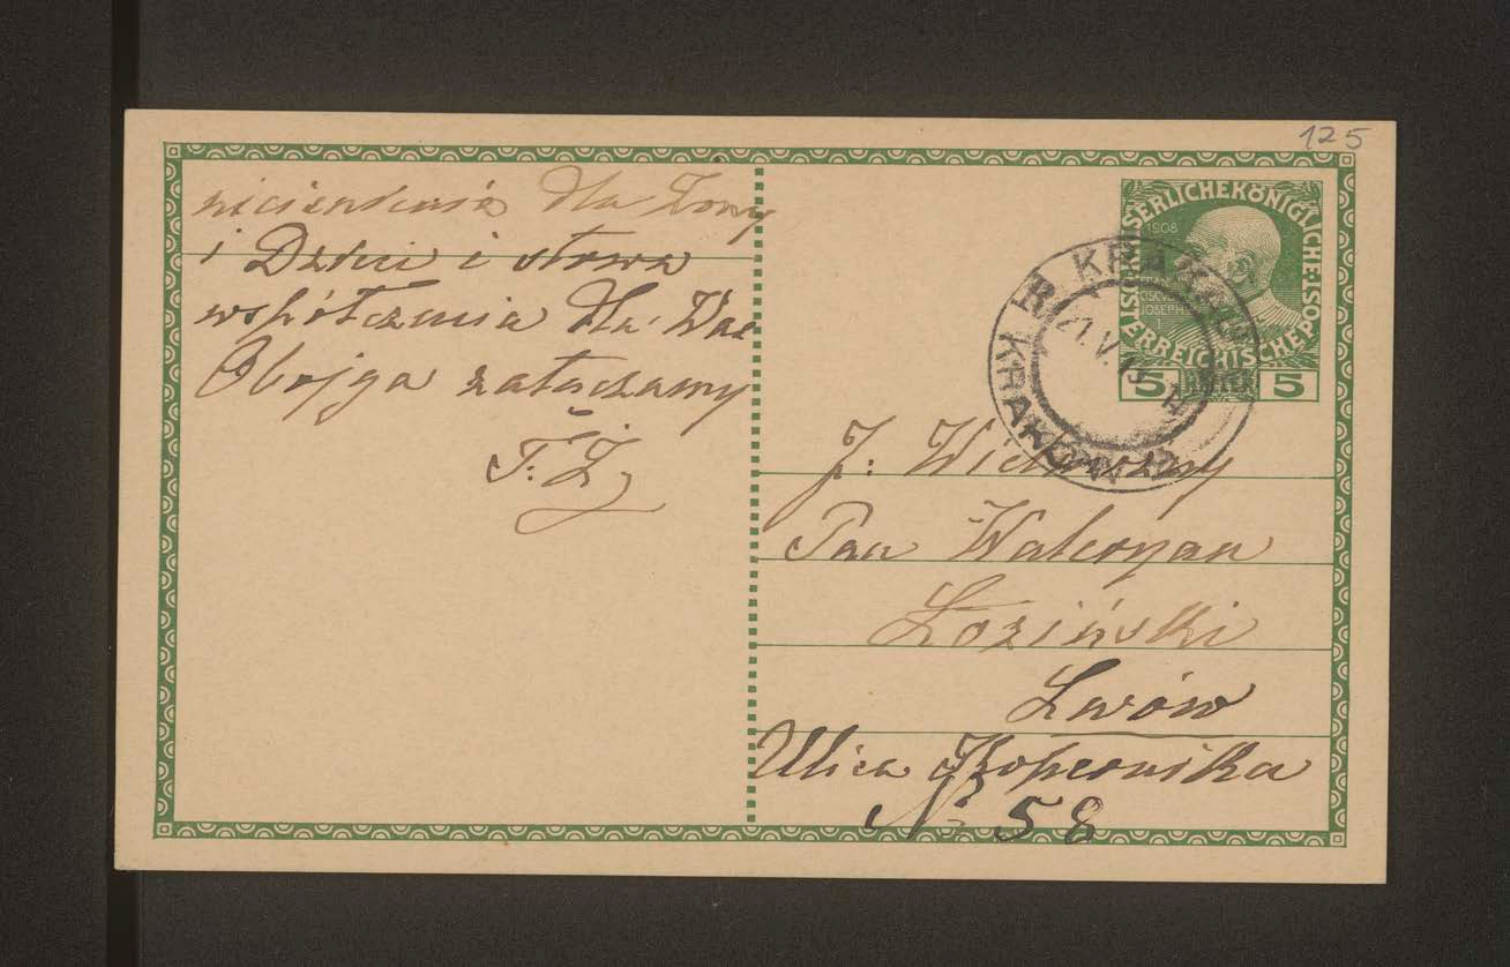 125
dla Żony
i Dzieci i słowa
współczucia dla Was
Obojga załączamy
T. Ż
KAISERLICHE KÖNIGLICHE
ÖSTERREICHISCHE POST
1908
FRANZ
JOSEPH I
5 HELLER 5
KRAKAU
KRAKÓW
J. Wielmożny
Pan Waleryan
Łoziński
Lwów
Ulica Kopernika
N° 58